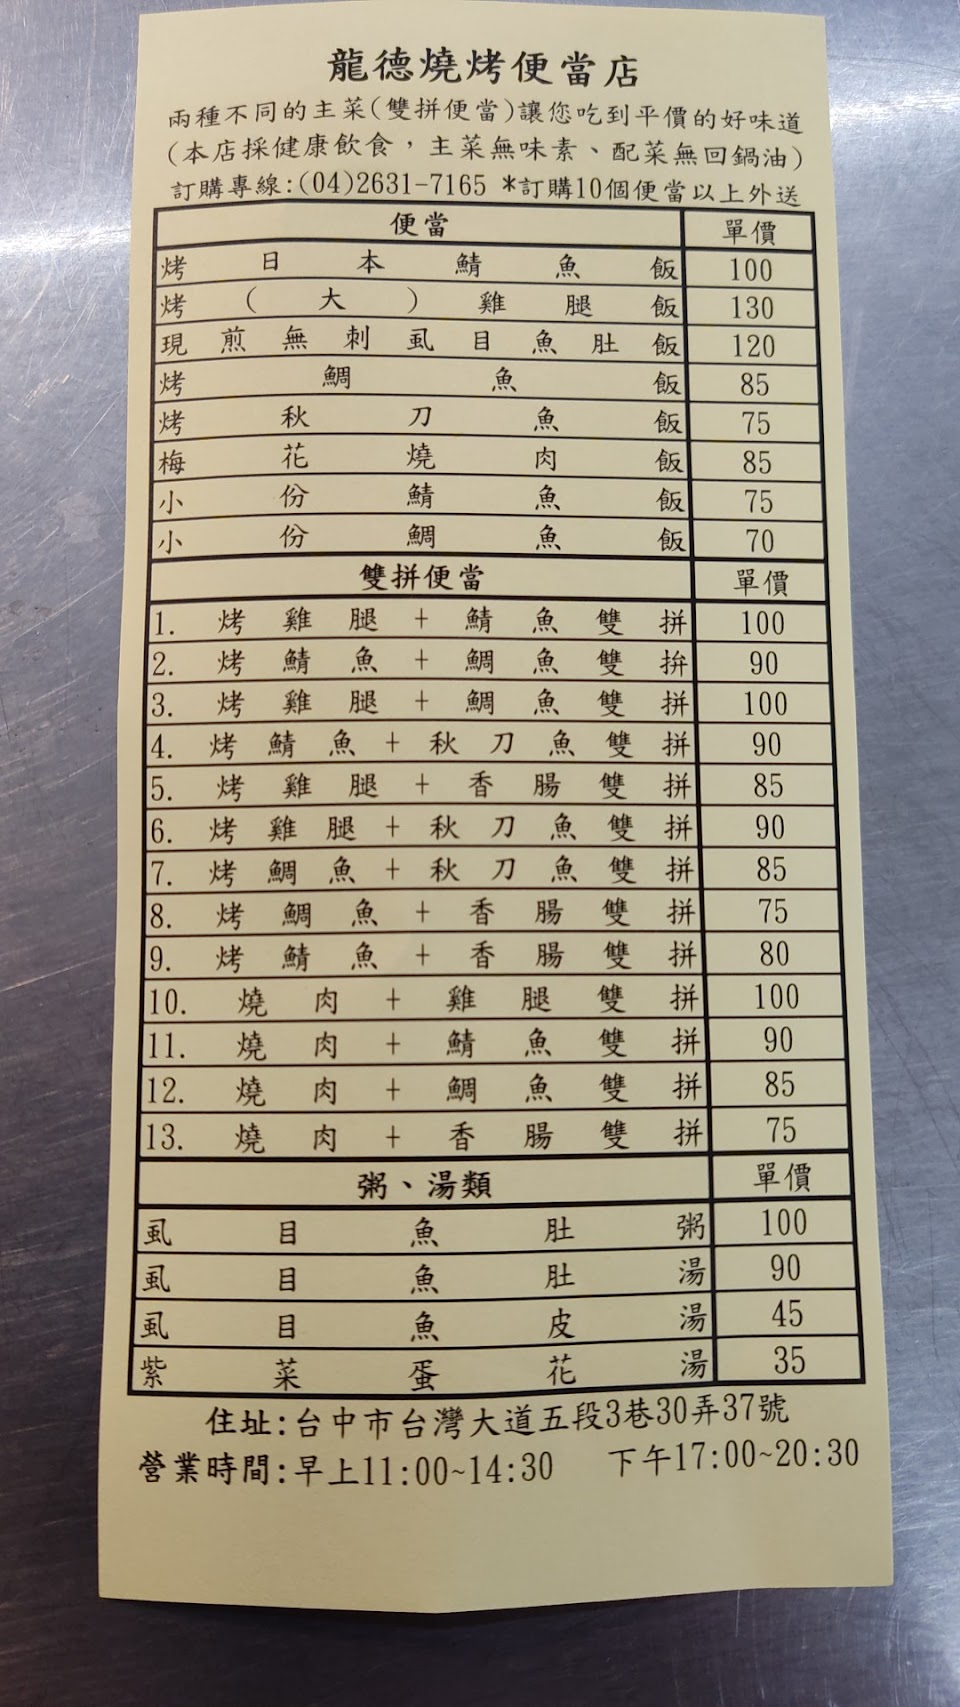 龍德燒烤便當店
兩種不同的主菜(雙拼便當)讓您吃到平價的好味道
(本店採健康飲食，主菜無味素、配菜無回鍋油)
訂購專線:(04)2631-7165 *訂購10個便當以上外送
便當 單價
烤日本鯖魚飯 100
烤(大)雞腿飯 130
現煎無刺虱目魚肚飯 120
烤鯛魚飯 85
烤秋刀魚飯 75
梅花燒肉飯 85
小份鯖魚飯 75
小份鯛魚飯 70
雙拼便當 單價
1. 烤雞腿+鯖魚雙拼 100
2. 烤鯖魚+鯛魚雙拼 90
3. 烤雞腿+鯛魚雙拼 100
4. 烤鯖魚+秋刀魚雙拼 90
5. 烤雞腿+香腸雙拼 85
6. 烤雞腿+秋刀魚雙拼 90
7. 烤鯛魚+秋刀魚雙拼 85
8. 烤鯛魚+香腸雙拼 75
9. 烤鯖魚+香腸雙拼 80
10. 燒肉+雞腿雙拼 100
11. 燒肉+鯖魚雙拼 90
12. 燒肉+鯛魚雙拼 85
13. 燒肉+香腸雙拼 75
粥、湯類 單價
虱目魚肚粥 100
虱目魚肚湯 90
虱目魚皮湯 45
紫菜蛋花湯 35
住址:台中市台灣大道五段3巷30弄37號
營業時間:早上11:00~14:30 下午17:00~20:30